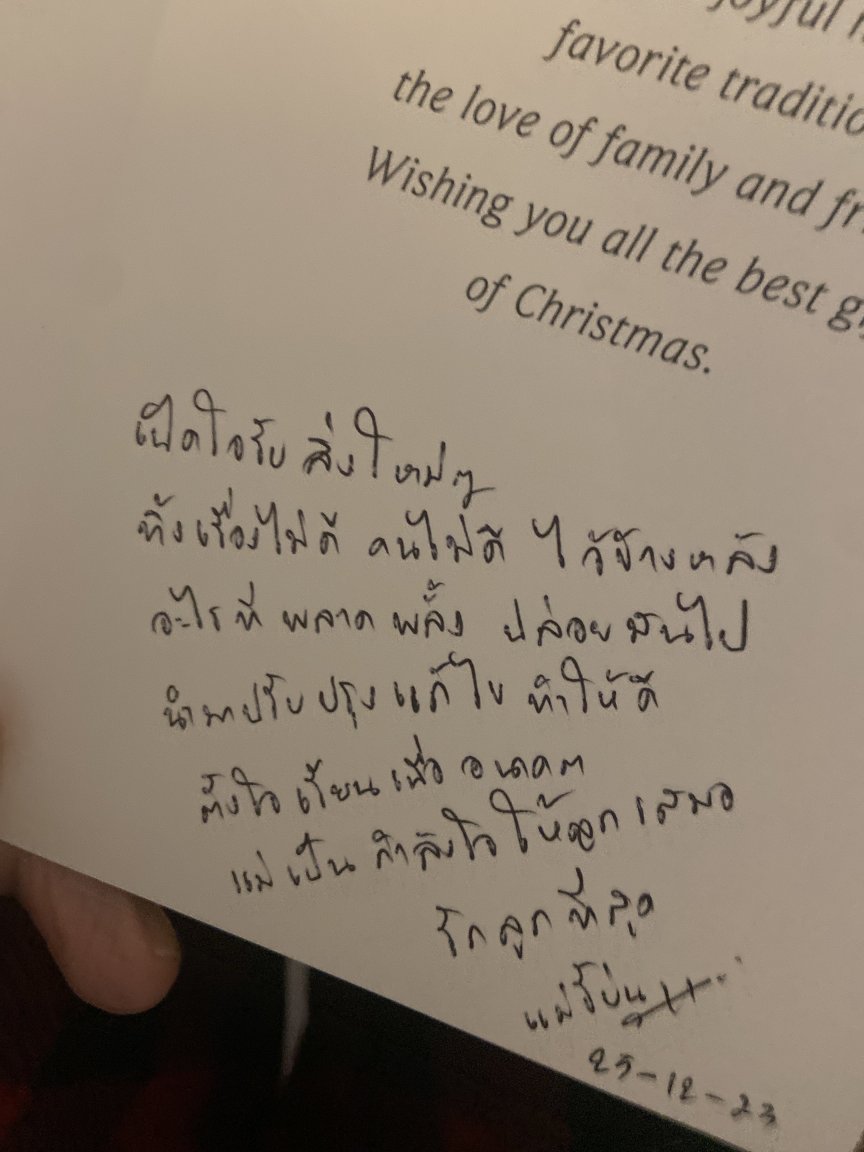 joyful
favorite traditio
the love of family and fri
Wishing you all the best gi
of Christmas.
เปิดใจรับ สิ่งใหม่ๆ
ทิ้งเรื่องไม่ดี คนไม่ดี ไว้ข้างหลัง
อะไรที่ พลาด พลั้ง ปล่อยมันไป
นำมาปรับปรุง แก้ไข ทำให้ดี
ตั้งใจ เรียน เพื่อ อนาคต
แม่ เป็น กำลังใจ ให้ลูก เสมอ
รักลูกที่สุด
แม่
25-12-23